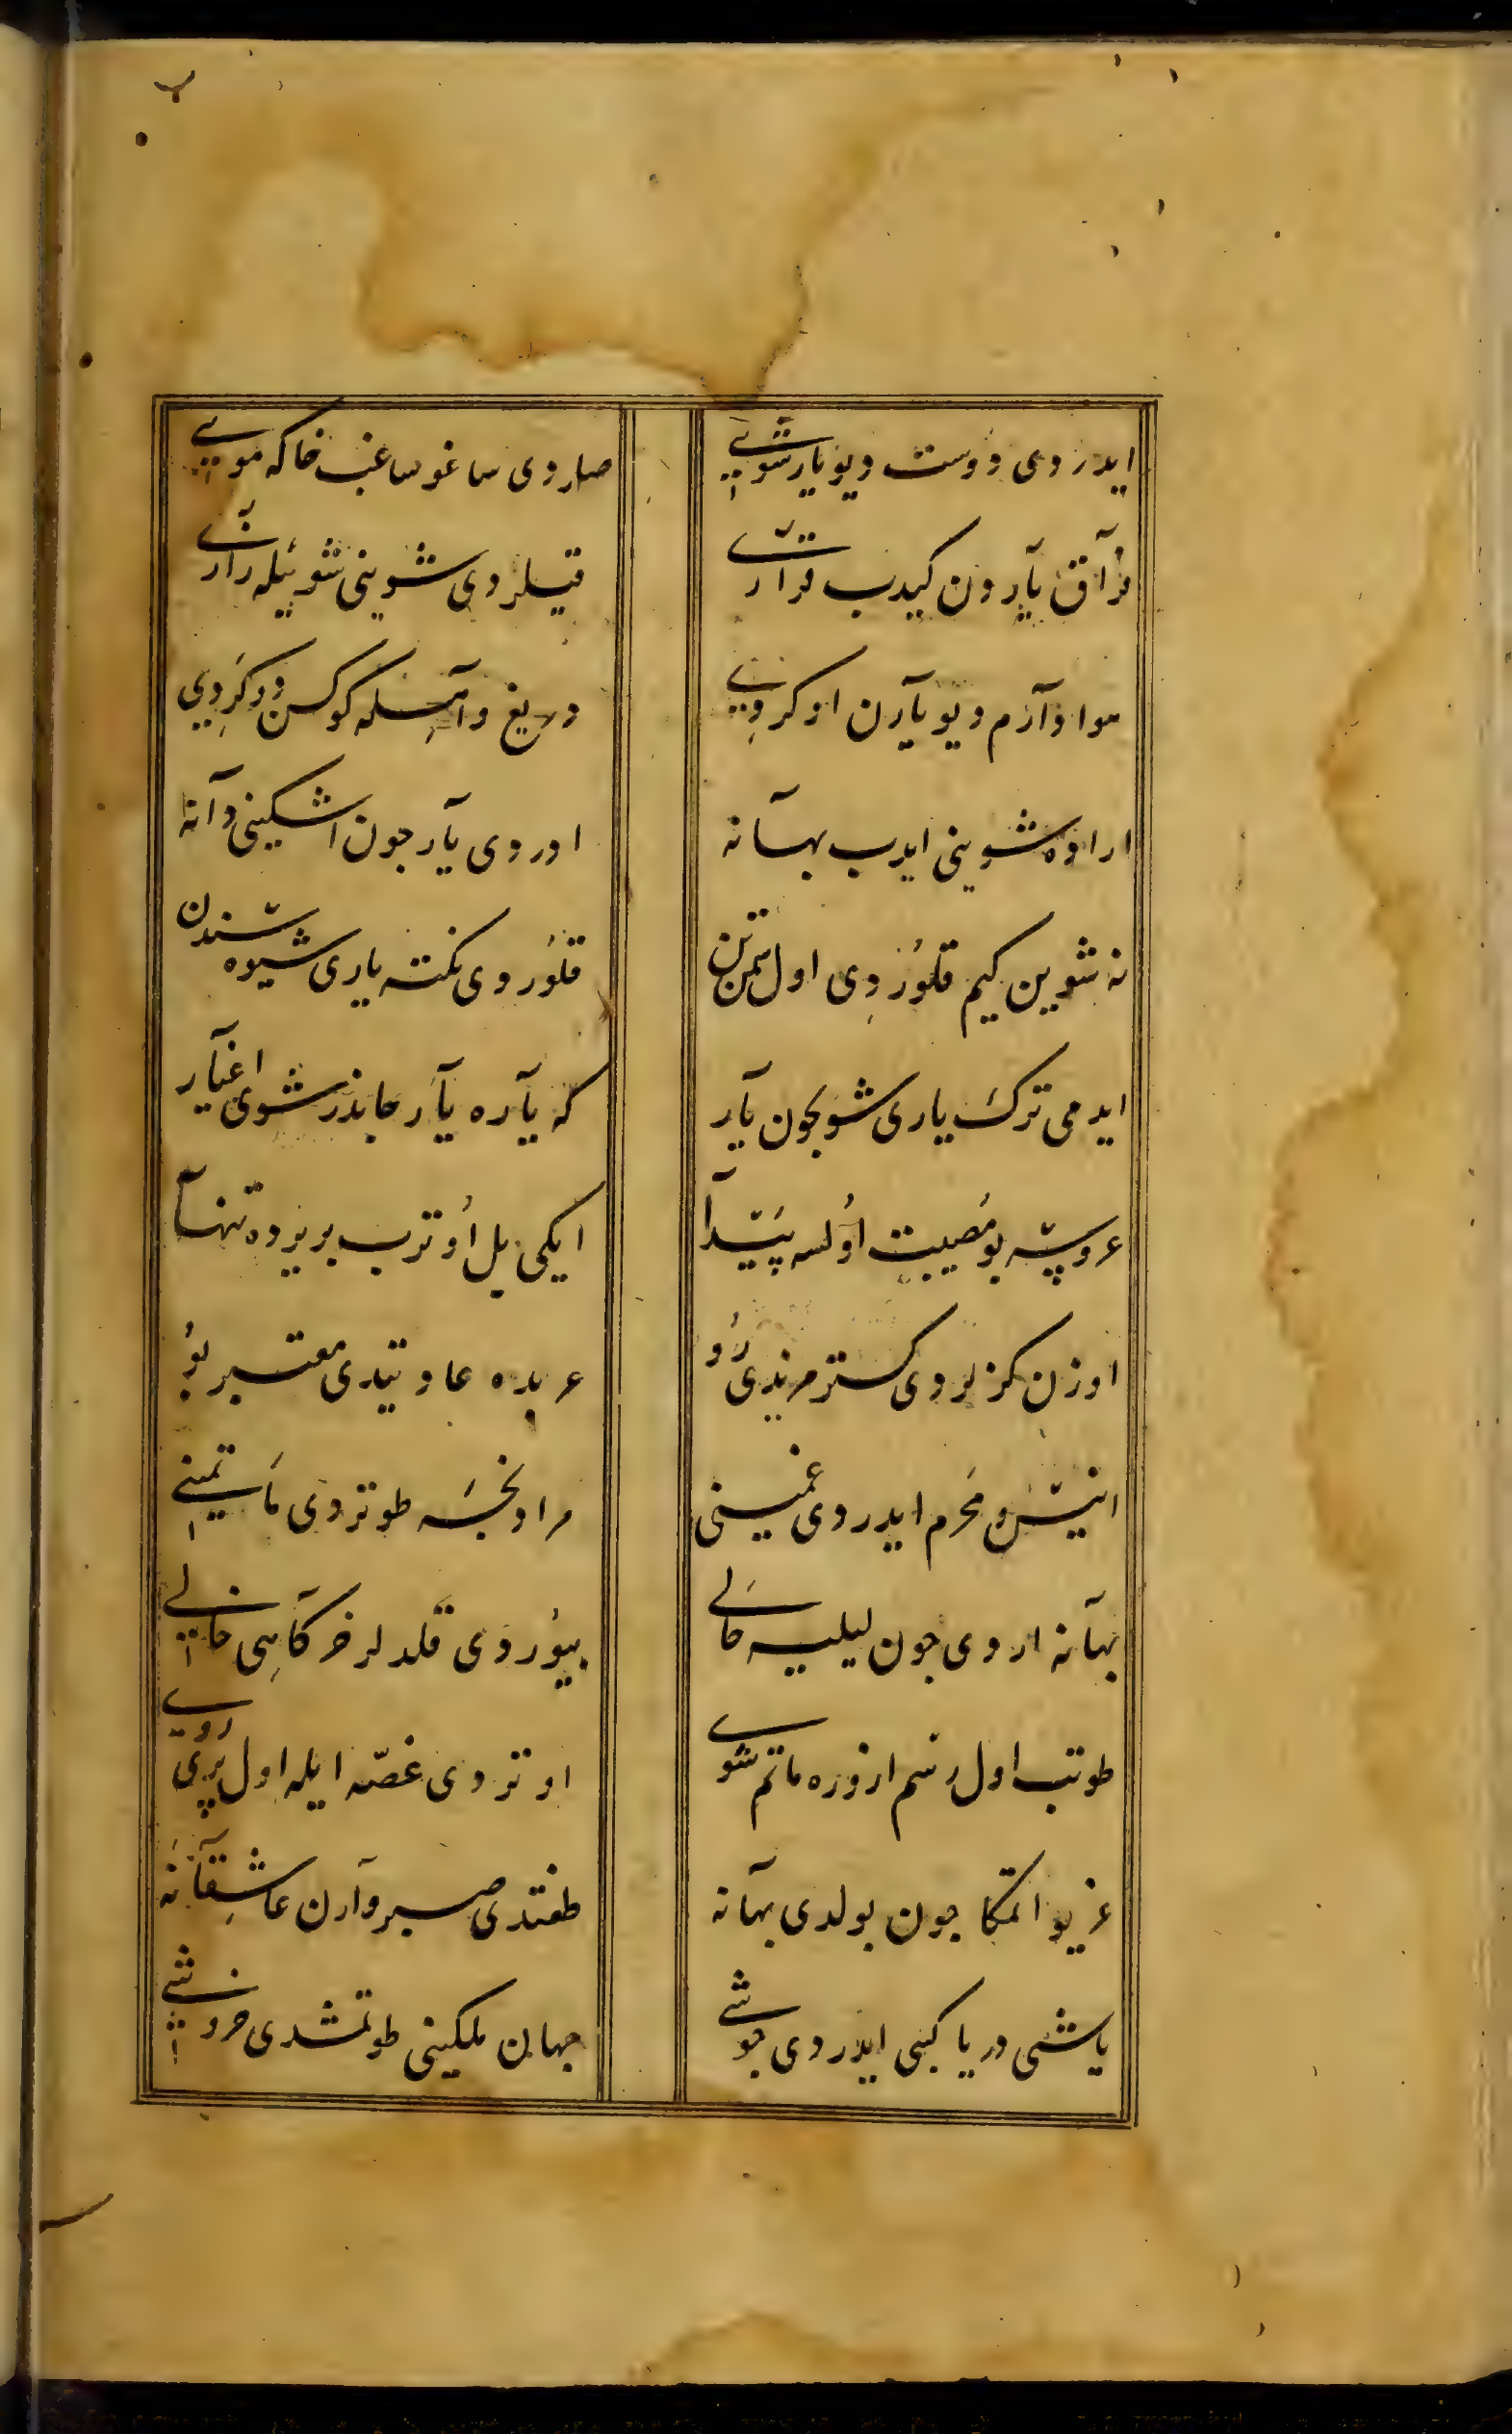 ایدردی دوست دیو یار شویی
صاردی ساغو ساغب خاکه مویی
فراق یاردن کیدب قراری
قیلردی شوینی شویله زاری
هوادارم دیو یارن اوکردی
دریغ و آهیله کوکسن دوکردی
اراده شوینی ایدب بهانه
اوردی یار جون اشکینی دانه
نه شوین کیم قلوردی اول سمنتن
قلوردی نکته یاری شیوه سندن
ایدمی ترک یاری شویجون یار
که یاره یار جاندر شوی اغیار
عروسه بو مصیبت اولسه پیدا
ایکی یل اوترب بر یرده تنها
اوزن کزلردی کسترمزیدی رو
عربده عادتیدی معتبر بو
انیس و محرم ایدردی غمینی
مرادنجسه طوتردی ماتمینی
بهانه اردی جون لیلیه حالی
بیوردی قلدلر خرکاهی خالی
طوتب اول رسم ازوره ماتم شوی
اوتردی غصه ایله اول پری روی
غریو اتمکا جون بولدی بهانه
طغتدی صبر وارن عاشقانه
یاشی دریا کبی ایدردی جوشی
جهان ملکینی طوتمشدی خروشی